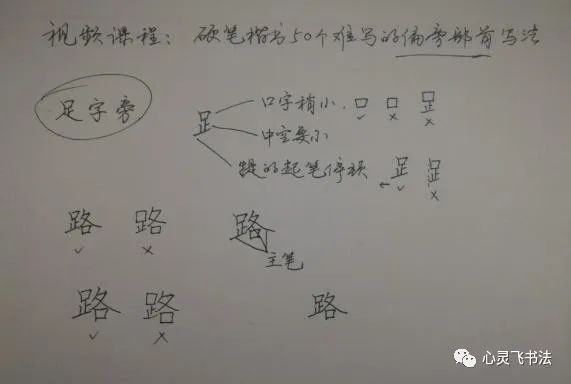 视频课程：硬笔楷书50个难写的偏旁部首写法
足字旁
⻊
口字稍小. 口 口 ⻊
✓ × ×
中空要小
提的起笔停顿 ← ⻊ ⻊
✓ ×
路 路 路
✓ × 主笔
路 路 路
✓ ×
心灵飞书法